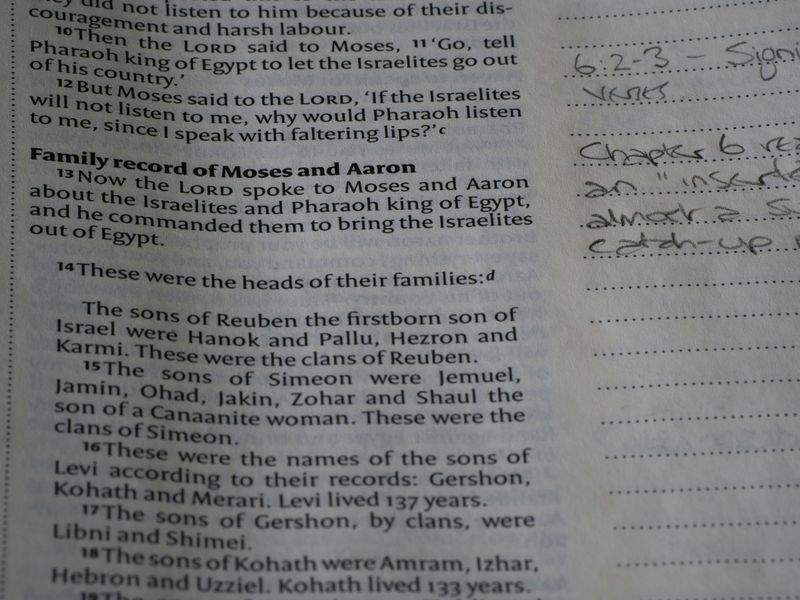 they did not listen to him because of their dis-
couragement and harsh labour.
10 Then the LORD said to Moses, 11 'Go, tell
Pharaoh king of Egypt to let the Israelites go out
of his country.'
12 But Moses said to the LORD, 'If the Israelites
will not listen to me, why would Pharaoh listen
to me, since I speak with faltering lips?'c
Family record of Moses and Aaron
13 Now the LORD spoke to Moses and Aaron
about the Israelites and Pharaoh king of Egypt,
and he commanded them to bring the Israelites
out of Egypt.
14 These were the heads of their families:d
The sons of Reuben the firstborn son of
Israel were Hanok and Pallu, Hezron and
Karmi. These were the clans of Reuben.
15 The sons of Simeon were Jemuel,
Jamin, Ohad, Jakin, Zohar and Shaul the
son of a Canaanite woman. These were the
clans of Simeon.
16 These were the names of the sons of
Levi according to their records: Gershon,
Kohath and Merari. Levi lived 137 years.
17 The sons of Gershon, by clans, were
Libni and Shimei.
18 The sons of Kohath were Amram, Izhar,
Hebron and Uzziel. Kohath lived 133 years.
6:2-3 - Signi
verses
Chapter 6 rea
an "inserte
almost a su
catch-up